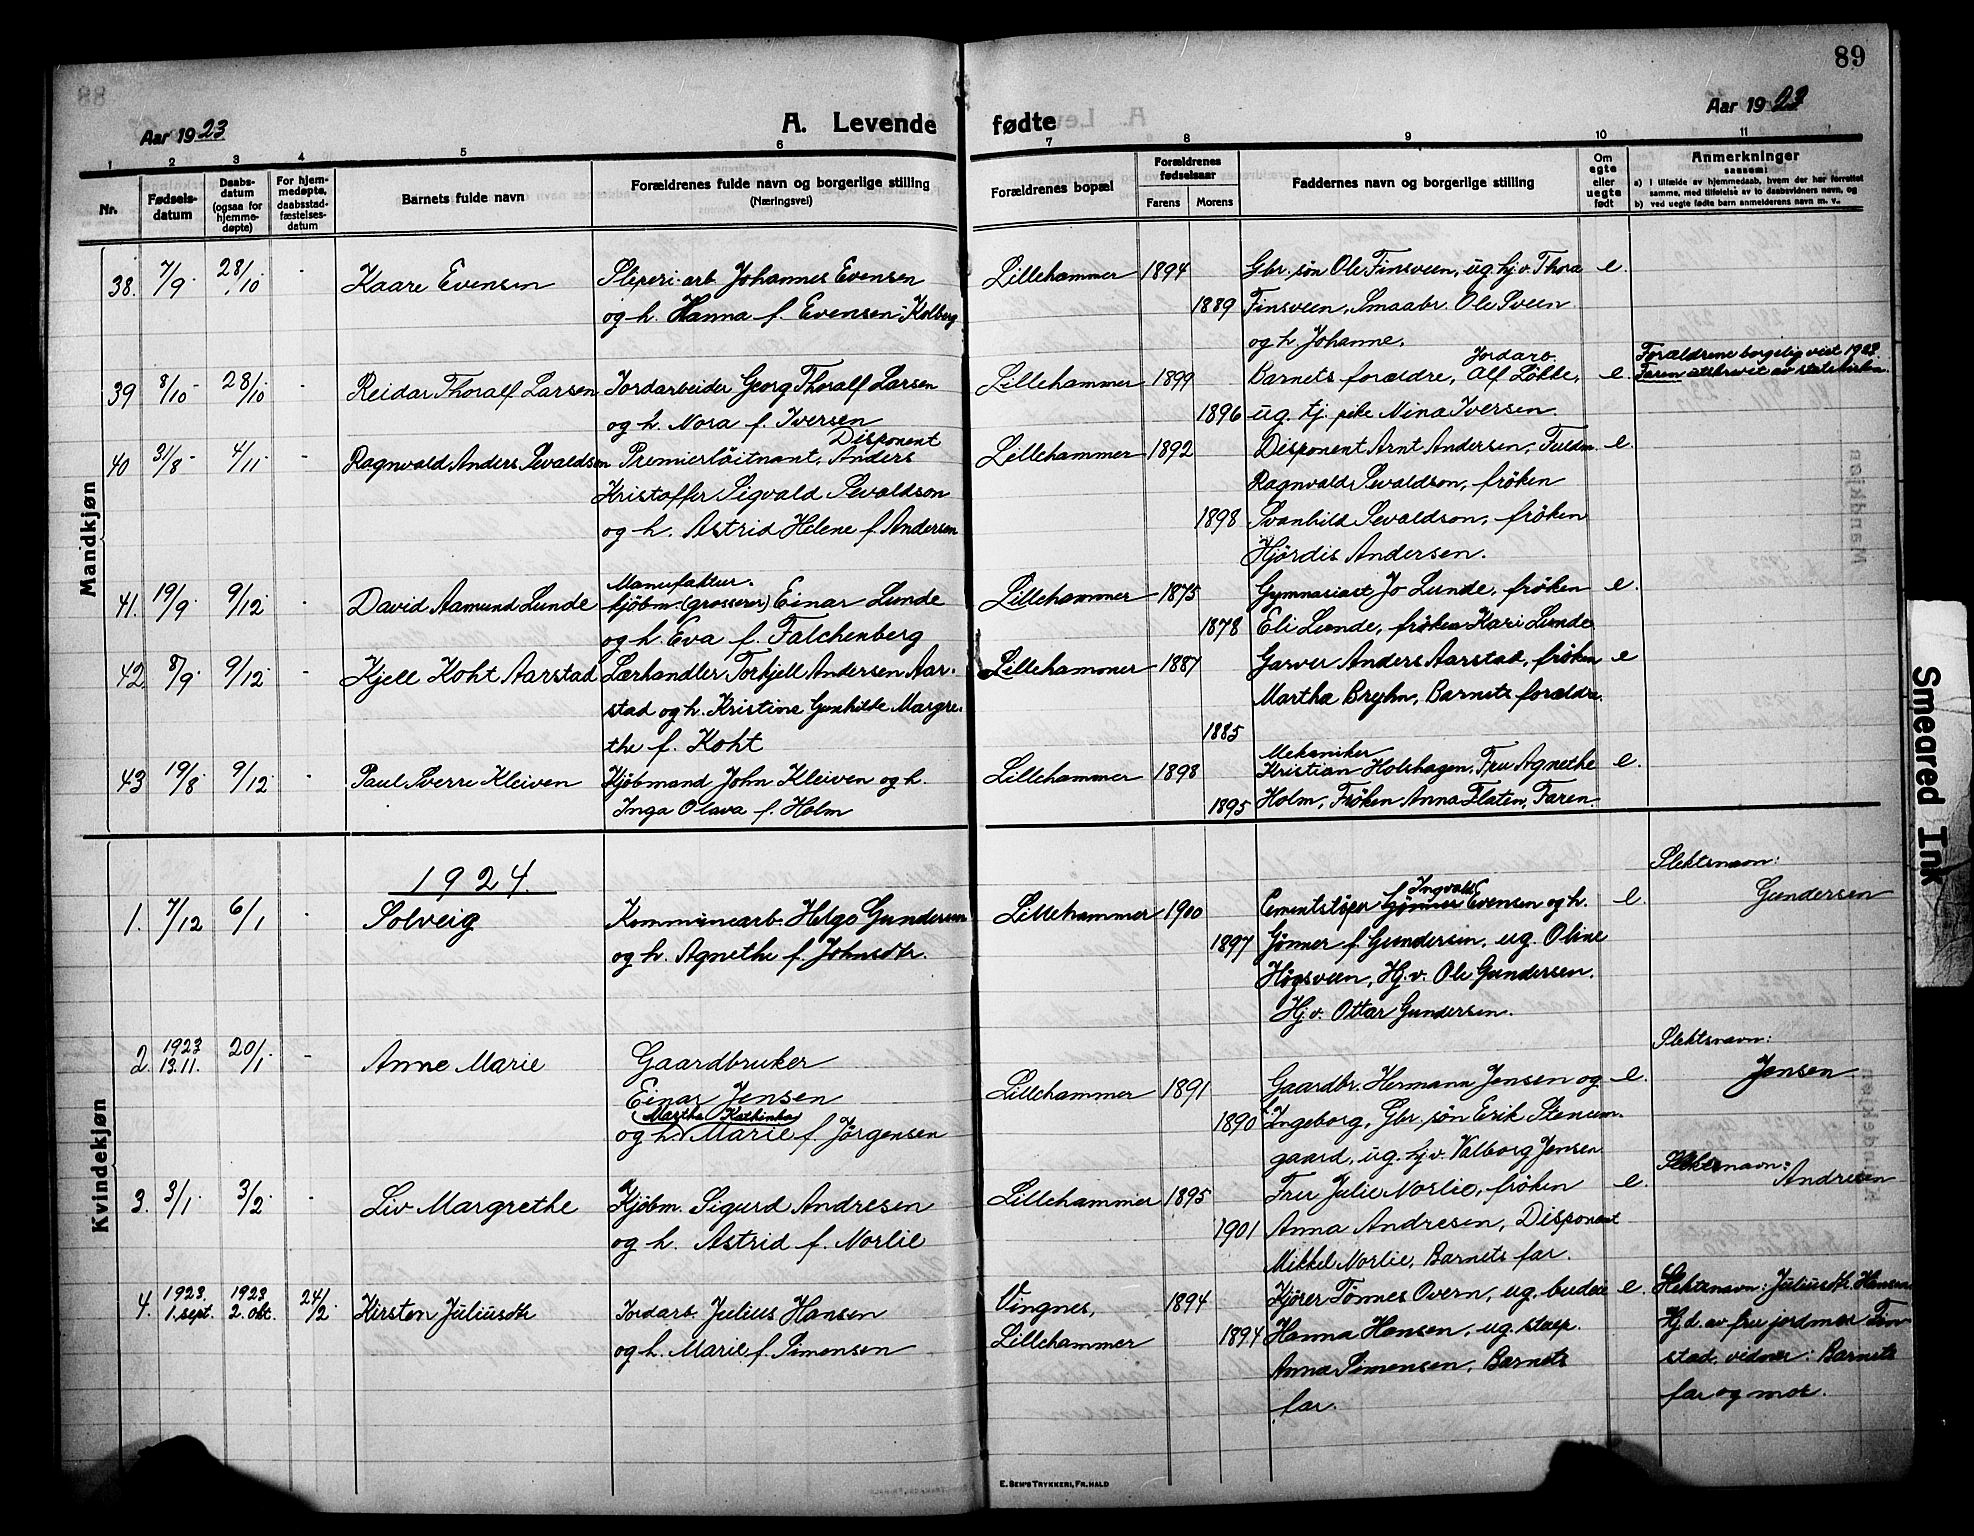 89
Aar 1923
A. Levende fødte
Aar 1923
1 2 3 4 5 6 7 8 9 10 11
Nr.
Fødsels-
datum
Daabs-
datum
(ogsaa for
hjemme-
døpte)
For hjem-
medøpte,
daabsstad-
fæstelses-
datum
Barnets fulde navn
Forældrenes fulde navn og borgerlige stilling
(Næringsvei)
Forældrenes bopæl
Forældrenes
fødselsaar
Farens Morens
Faddernes navn og borgerlige stilling
Om
egte
eller
uegte
født
Anmerkninger
saasom:
a) i tilfælde av hjemmedaab, hvem der har forrettet
samme, med tilføielse av to daabsvidners navn, og
b) ved uegte fødte barn anmelderens navn m. v.
Mandkjøn
38. 7/9 28/10 - Kaare Evensen
Sliperi-arb. Johannes Evensen
og h. Hanna f. Evensen-Kolberg
Lillehammer 1894
1889
Gbr. søn Ole Finsveen, ug. hj.v. Thora
Finsveen, Smaabr. Ole Sveen
og h. Johanne.
e.
39 8/10 - 28/10 - Reidar Thoralf Larsen
Jordarbeider Georg Thoralf Larsen
og h. Nora f. Iversen
Lillehammer 1899
1896
Jordarb.
Barnets forældre, Alf Løkke,
ug. tj. pike Nina Iversen.
e.
Forældrene borgelig viet 1923.
Faren utskrevet av statskirken.
40 31/8 - 4/11 - Ragnvald Anders Sevaldson
Disponent
Premierløitnant, Anders
Kristoffer Sigvald Sevaldson
og h. Astrid Helene f. Andersen
Lillehammer 1892
1898
Disponent Arnt Andersen, Fuldm.
Ragnvald Sevaldson, frøken
Svanhild Sevaldson, frøken
Hjørdis Andersen.
e.
41. 19/9. 9/12 - David Aamund Lunde
Manufaktur.
kjøbm. (grosserer) Einar Lunde
og h. Eva f. Falchenberg
Lillehammer 1875
1878
Gymnasiast Jo Lunde, frøken
Eli Lunde, frøken Kari Lunde
e.
42 8/9. 9/12 - Kjell Koht Aarstad
Lærhandler Torkjell Andersen Aar-
stad og h. Kristine Gunhilde Margre-
the f. Koht
Lillehammer 1887
1885
Garver Anders Aarstad, frøken
Martha Bryhn, Barnets forældre.
e
43 19/8. 9/12 - Paul Sverre Kleiven
Kjøbmand John Kleiven og h.
Inga Olava f. Holm
Lillehammer 1898
1895
Mekaniker
Kristian Holshagen, Fru Agnethe
Holm, Frøken Anna Flaten, Faren
e.
Kvindekjøn
1924.
1. 7/12 6/1 - Solveig
Kommunearb. Helge Gundersen
og h. Agnethe f. Johnsdtr.
Lillehammer 1900
1897
Ingvald
Cementstøper Gønner Evensen og h.
Gønner f. Gundersen, ug. Oline
Høgsveen, Hj.v. Ole Gundersen.
Hj.v. Ottar Gundersen.
e.
Slektsnavn:
Gundersen
2. 1923 13.11. 20/1 - Anne Marie
Gaardbruker
Einar Jensen
(Martha Kathinka)
og h. Marie f. Jørgensen
Lillehammer 1891
1890
Gaardbr. Hermann Jensen og
Ingeborg, Gbr. søn Erik Stenum-
gaard, ug. hj.v. Valborg Jensen
e.
Slektsnavn:
Jensen
3. 3/1. 3/2 - Liv Margrethe
Kjøbm. Sigurd Andresen
og h. Astrid f. Norlie
Lillehammer 1895
1901
Fru Julie Norlie, frøken
Anna Andresen, Disponent
Mikkel Norlie, Barnets far.
e.
Slektsnavn:
Andresen
4. 1923. 1. sept. 1923 2. okt. 24/2 Kirsten Juliusdtr
Jordarb. Julius Hansen
og h. Marie f. Simensen
Vingnes,
Lillehammer
1894
1894
Kjører Tønnes Overn, ug. budeie
Hanna Hansen, ug.
Anna Simensen, Barnets
far.
e.
Slektsnavn: Juliusdtr. Hansen
Hj.d. av fru jordmor
stad, vidner: Barnets
far og mor.
E. Sem's Trykkeri, Fr.hald
Smeared Ink